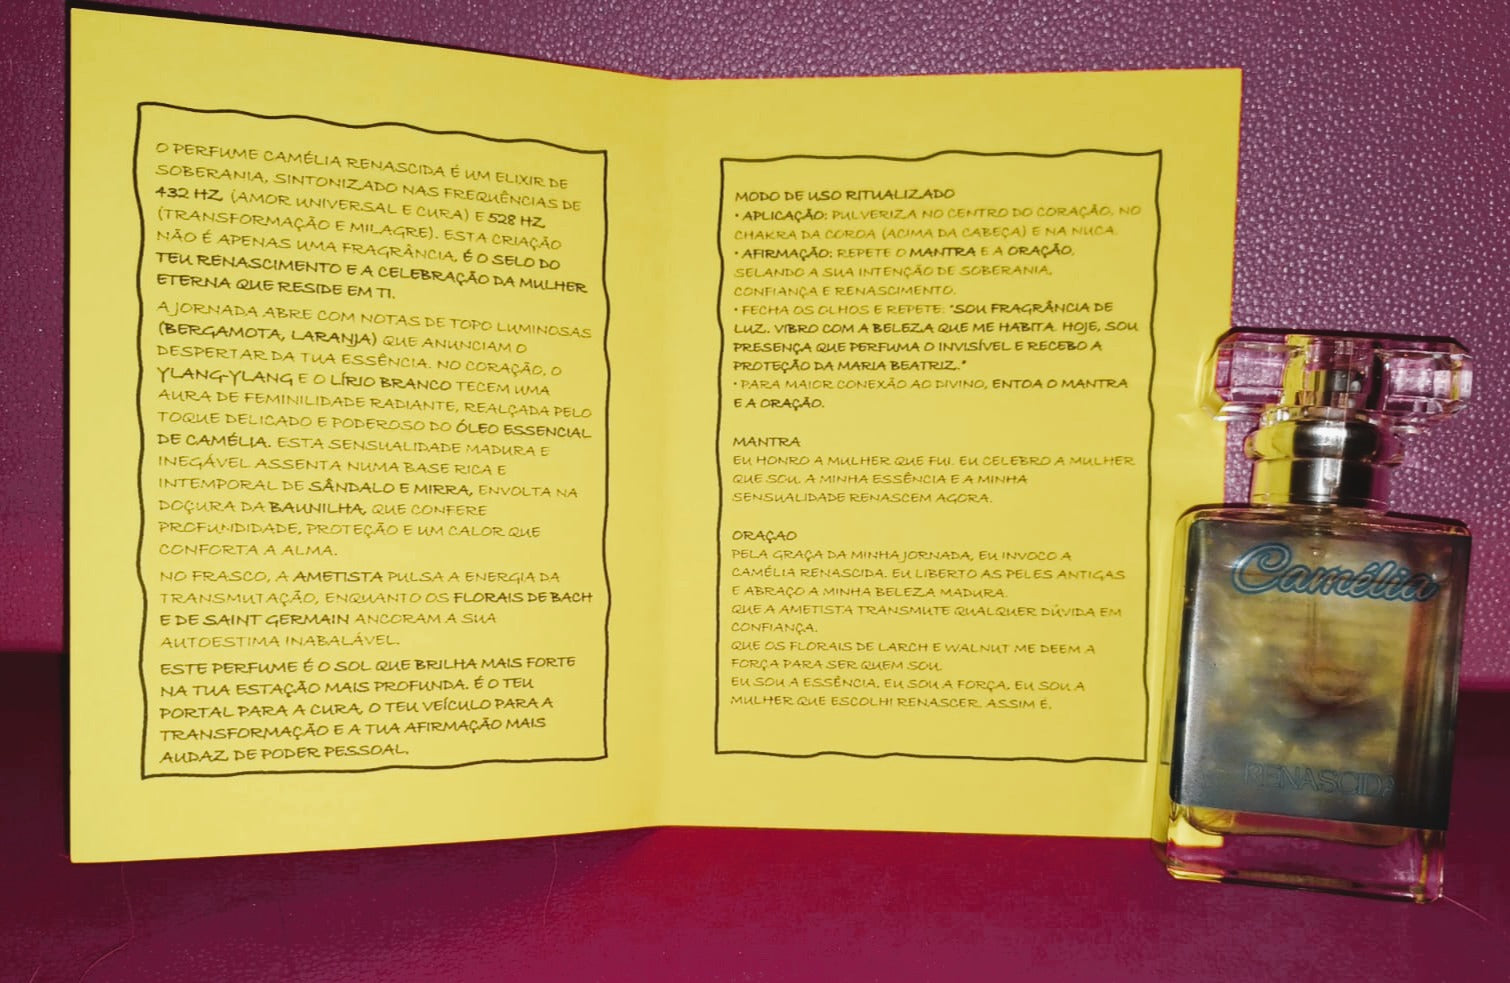 O PERFUME CAMÉLIA RENASCIDA É UM ELIXIR DE
SOBERANIA, SINTONIZADO NAS FREQUÊNCIAS DE
432 HZ (AMOR UNIVERSAL E CURA) E 528 HZ
(TRANSFORMAÇÃO E MILAGRE). ESTA CRIAÇÃO
NÃO É APENAS UMA FRAGRÂNCIA, É O SELO DO
TEU RENASCIMENTO E A CELEBRAÇÃO DA MULHER
ETERNA QUE RESIDE EM TI.
A JORNADA ABRE COM NOTAS DE TOPO LUMINOSAS
(BERGAMOTA, LARANJA) QUE ANUNCIAM O
DESPERTAR DA TUA ESSÊNCIA. NO CORAÇÃO, O
YLANG-YLANG E O LÍRIO BRANCO TECEM UMA
AURA DE FEMINILIDADE RADIANTE, REALÇADA PELO
TOQUE DELICADO E PODEROSO DO ÓLEO ESSENCIAL
DE CAMÉLIA. ESTA SENSUALIDADE MADURA E
INEGÁVEL ASSENTA NUMA BASE RICA E
INTEMPORAL DE SÂNDALO E MIRRA, ENVOLTA NA
DOÇURA DA BAUNILHA, QUE CONFERE
PROFUNDIDADE, PROTEÇÃO E UM CALOR QUE
CONFORTA A ALMA.
NO FRASCO, A AMETISTA PULSA A ENERGIA DA
TRANSMUTAÇÃO, ENQUANTO OS FLORAIS DE BACH
E DE SAINT GERMAIN ANCORAM A SUA
AUTOESTIMA INABALÁVEL.
ESTE PERFUME É O SOL QUE BRILHA MAIS FORTE
NA TUA ESTAÇÃO MAIS PROFUNDA. É O TEU
PORTAL PARA A CURA, O TEU VEÍCULO PARA A
TRANSFORMAÇÃO E A TUA AFIRMAÇÃO MAIS
AUDAZ DE PODER PESSOAL.
MODO DE USO RITUALIZADO
• APLICAÇÃO: PULVERIZA NO CENTRO DO CORAÇÃO, NO
CHAKRA DA COROA (ACIMA DA CABEÇA) E NA NUCA.
• AFIRMAÇÃO: REPETE O MANTRA E A ORAÇÃO,
SELANDO A SUA INTENÇÃO DE SOBERANIA,
CONFIANÇA E RENASCIMENTO.
• FECHA OS OLHOS E REPETE: "SOU FRAGRÂNCIA DE
LUZ. VIBRO COM A BELEZA QUE ME HABITA. HOJE, SOU
PRESENÇA QUE PERFUMA O INVISÍVEL E RECEBO A
PROTEÇÃO DA MARIA BEATRIZ."
• PARA MAIOR CONEXÃO AO DIVINO, ENTOA O MANTRA
E A ORAÇÃO.
MANTRA
EU HONRO A MULHER QUE FUI. EU CELEBRO A MULHER
QUE SOU. A MINHA ESSÊNCIA E A MINHA
SENSUALIDADE RENASCEM AGORA.
ORAÇAO
PELA GRAÇA DA MINHA JORNADA, EU INVOCO A
CAMÉLIA RENASCIDA. EU LIBERTO AS PELES ANTIGAS
E ABRAÇO A MINHA BELEZA MADURA.
QUE A AMETISTA TRANSMUTE QUALQUER DÚVIDA EM
CONFIANÇA.
QUE OS FLORAIS DE LARCH E WALNUT ME DEEM A
FORÇA PARA SER QUEM SOU.
EU SOU A ESSÊNCIA. EU SOU A FORÇA. EU SOU A
MULHER QUE ESCOLHI RENASCER. ASSIM É.
Camélia
RENASCIDA